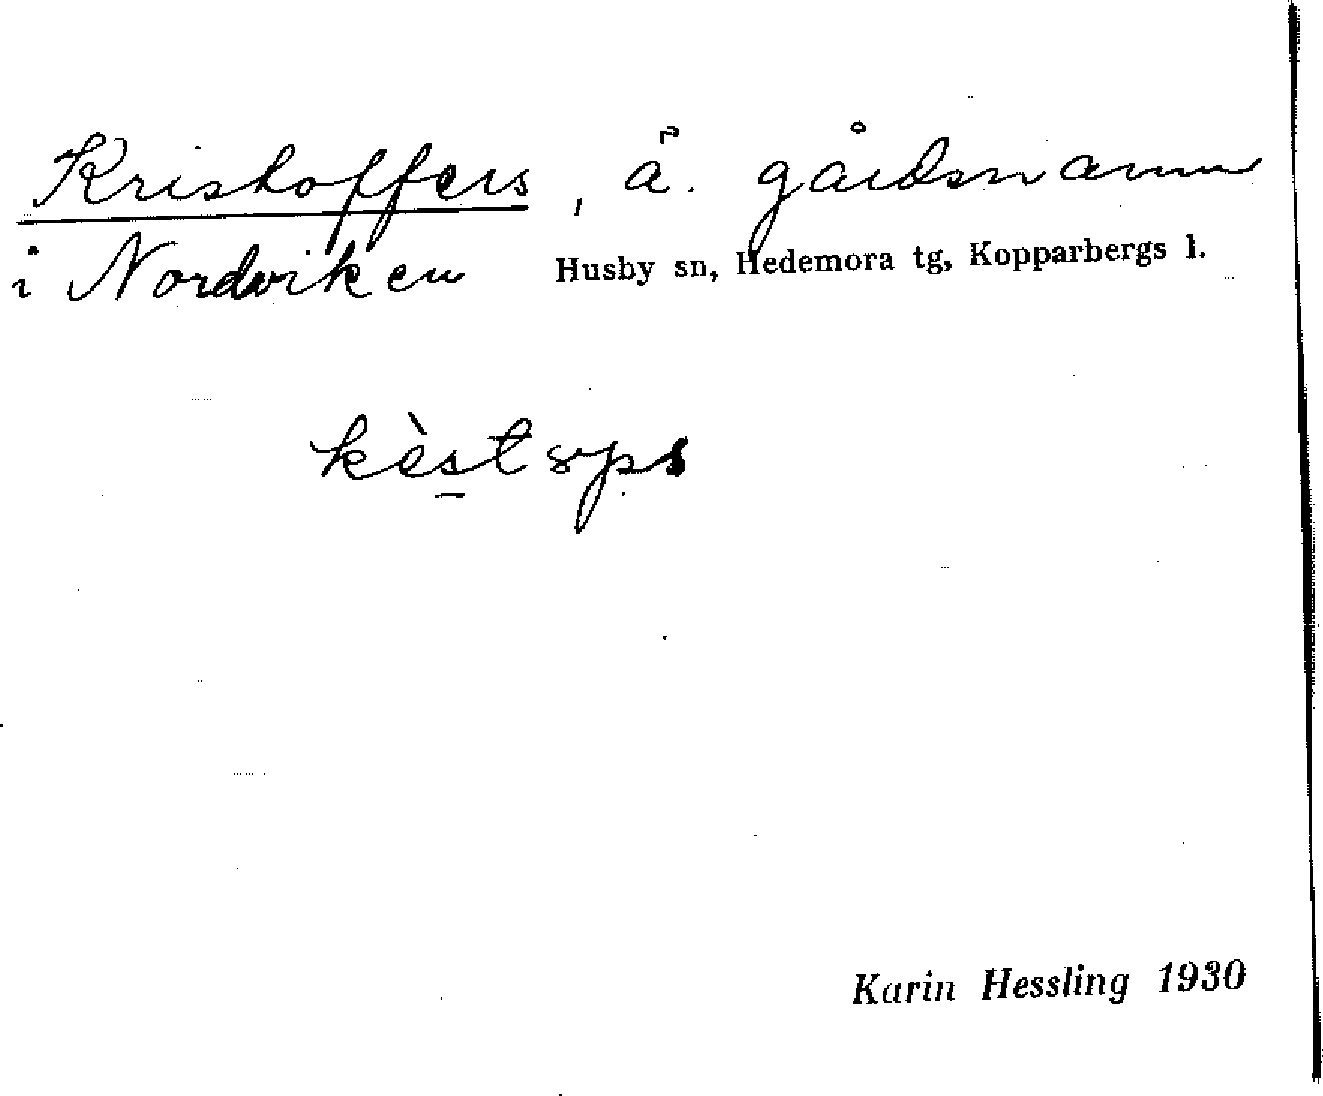 Kristoffers, ä. gårdsnamn
i Nordviken Husby sn, Hedemora tg, Kopparbergs l.
Karin Hessling 1930